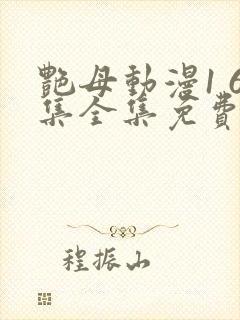 艷母動漫16
集全集免費
程振山